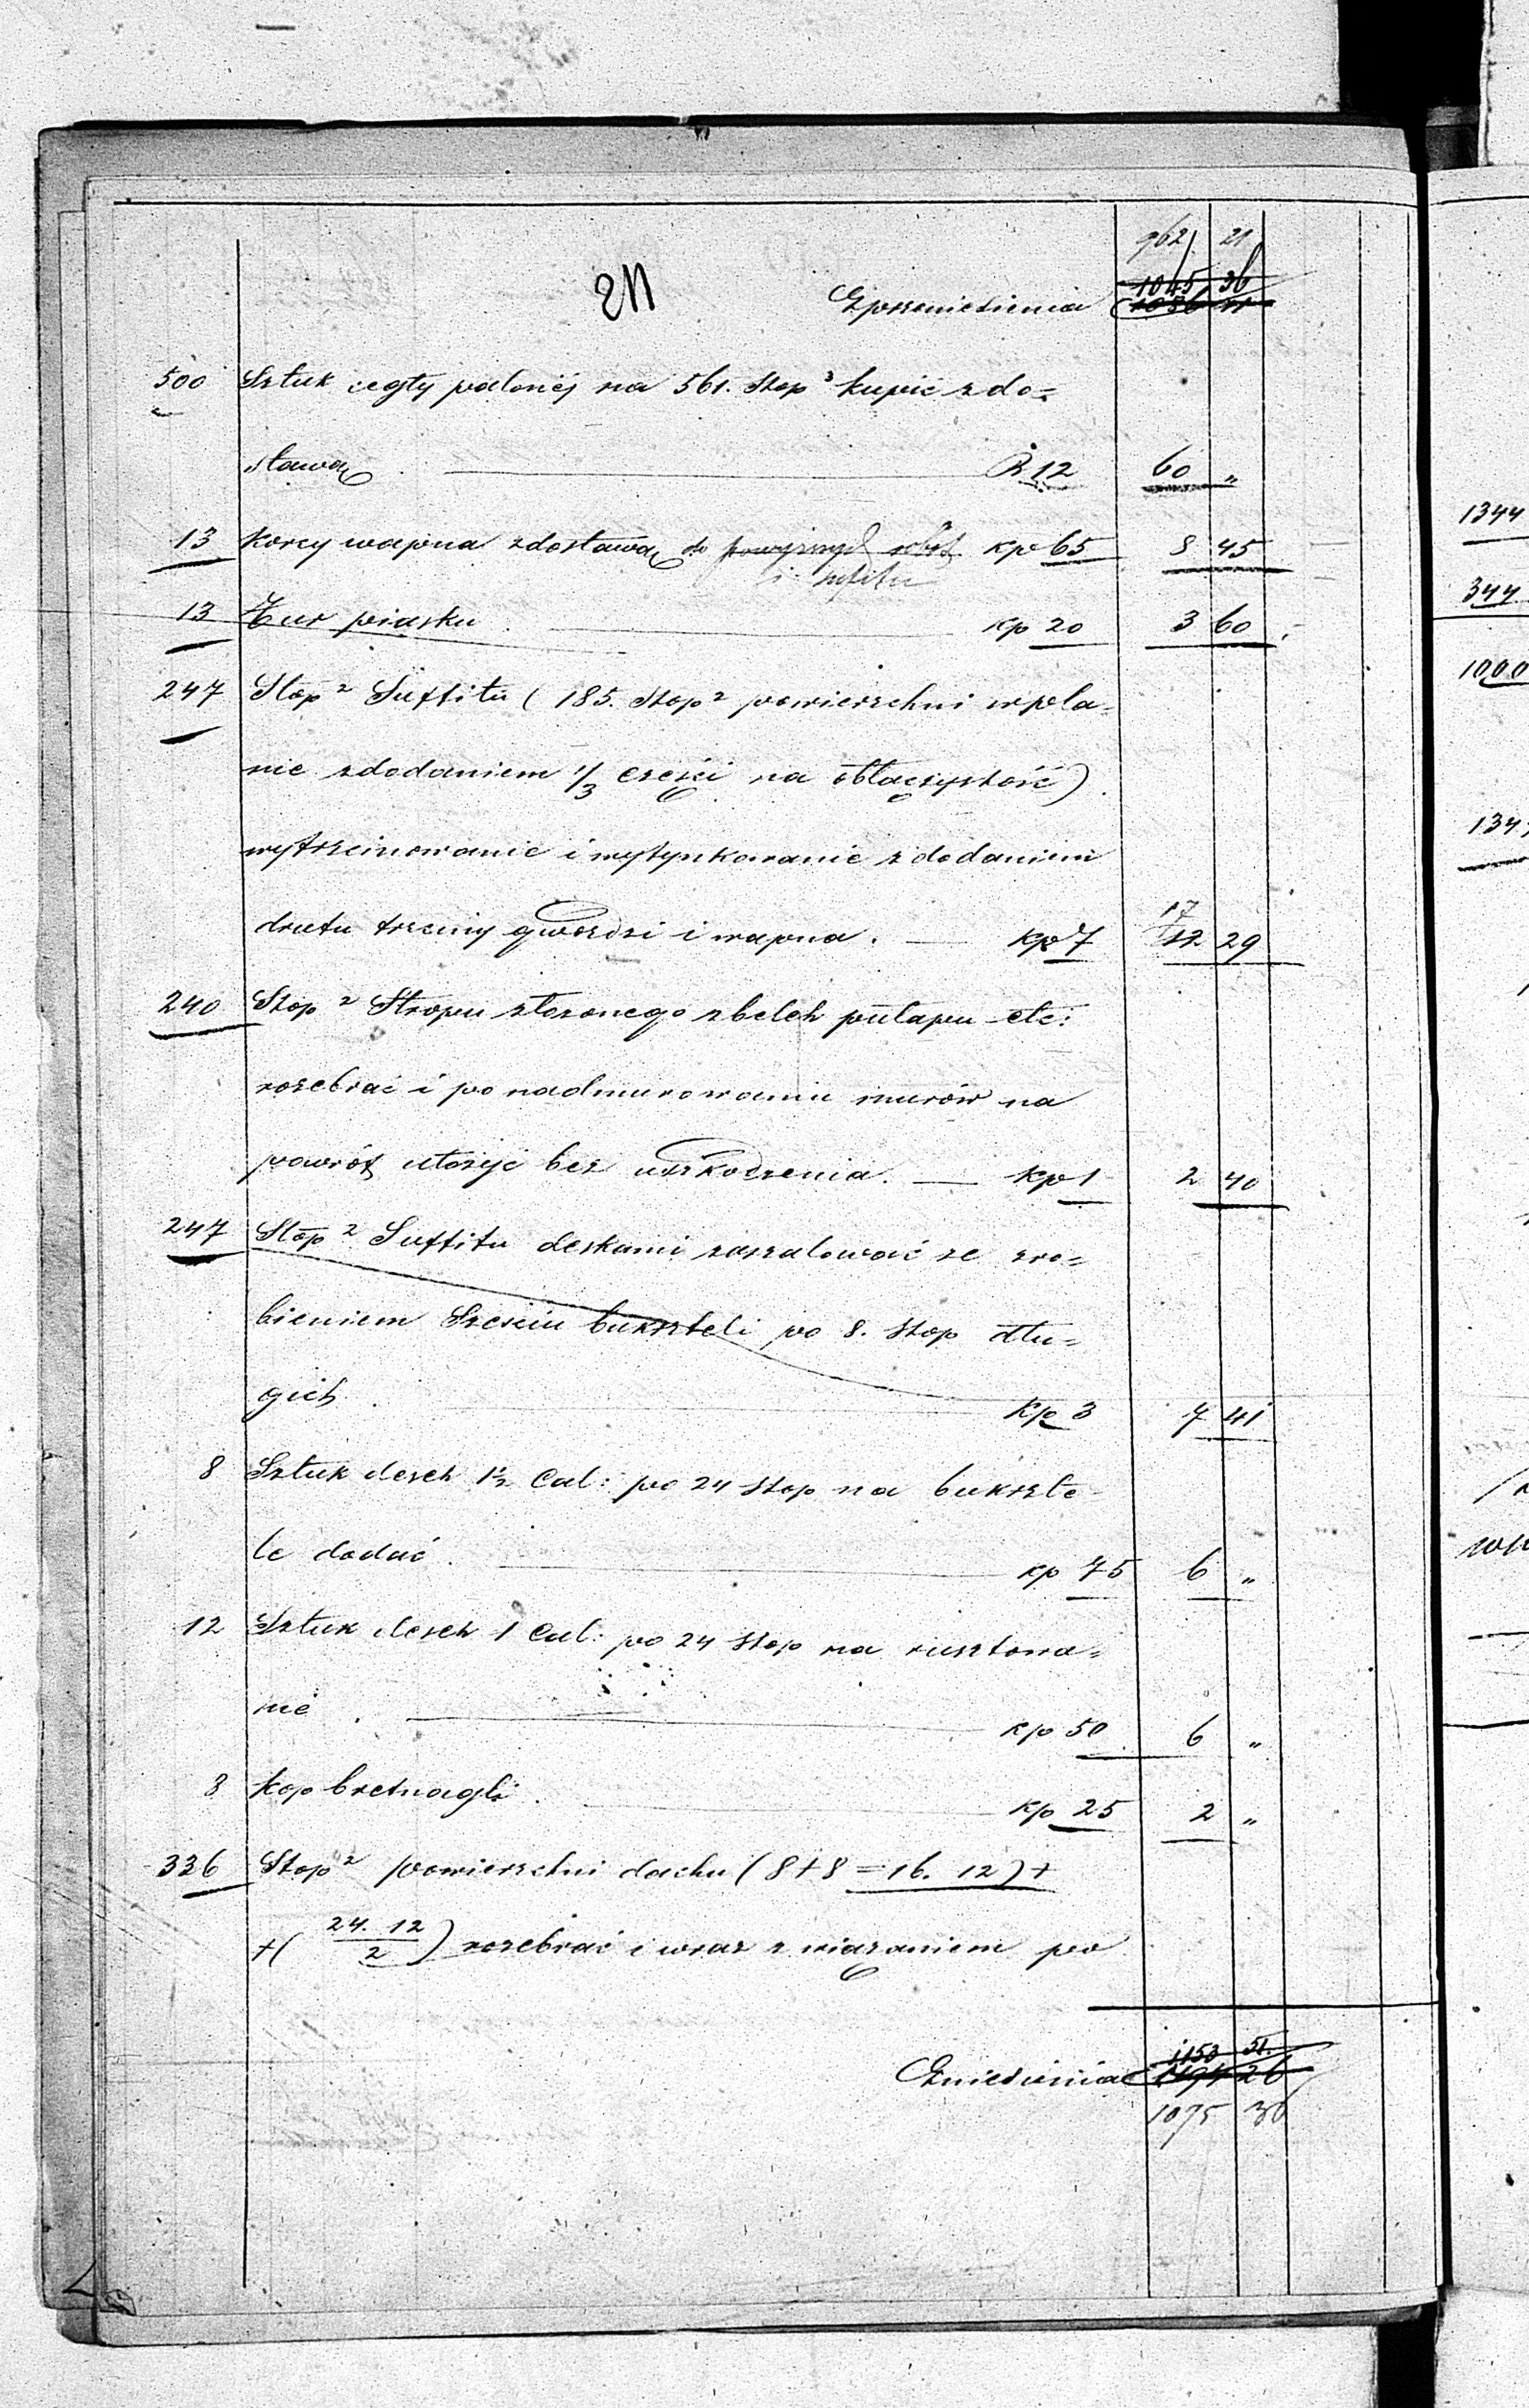 962 21
1045 36
Z przeniesienia 1036 11
500 Sztuk cegły palonéj na 561. Stop³ kupić z do=
stawą R 12 60 „
13 Korcy wapna z dostawą do powyższych robót kp 65 8 45
i sufitu
13 Fur piasku kp 20 3 60
247 Stop² Suffitu (185. Stop² powierzchni w pla=
nie z dodaniem 1/3 części na obłączystość)
wytrzcinowanie i wytynkowanie z dodaniem
17
drutu trzciny gwoździ i wapna. kp 7 12 29
240 Stop² Stropu złożonego z belek pułapu etc:
rozebrać i po nadmurowaniu murów na
powrót ułożyć bez uszkodzenia. kp 1 2 40
247 Stóp² Suffitu deskami zaszalować ze zro=
bieniem Sześciu buksteli po 8. Stop dłu=
gich kp 3 7 41
8 Sztuk desek 1½ Cal: po 24 Stop na bukszte=
le dodać. kp 75 6 „
12 Sztuk desek 1 Cal: po 24 Stop na rusztowa=
nie. kp 50 6 „
8 Kop bretnagli. kp 25 2 „
336 Stop² powierzchni dachu (8+8=16. 12)+
+(24. 12/2) rozebrać i wraz z wiązaniem po
1153 51.
Zniesienia 1194 26
1075 36
1344
344
1000